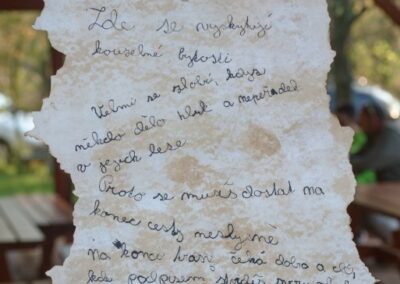 Zde se vyskytují
kouzelné bytosti
Velmi se zlobí, když
někdo dělá hluk a nepořádek
v jejich lese
Proto se musíš dostat na
konec cesty neslyšně
Na konci hraní čeká dobro a
kde podpisem